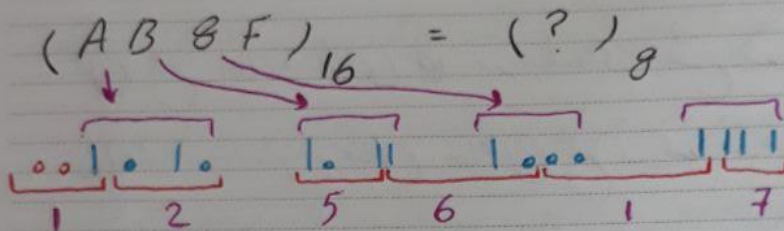 (A B 8 F)16 = (?)8
001010 1011 1000 1111
1 2 5 6 1 7